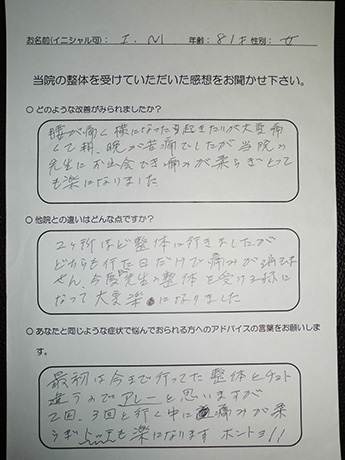 お名前(イニシャル可)： I. M 年齢： 81才 性別： 女
当院の整体を受けていただいた感想をお聞かせ下さい。
○ どのような改善がみられましたか？
腰が痛く横になったり起きたりが大変痛
くて朝、晩が苦痛でしたが当院の
先生にお出会でき痛みが柔らぎとって
も楽になりました
○ 他院との違いはどんな点ですか？
2ヶ所ほど整体に行きましたが
どちらも行た日だけで痛みが
せん、今度先生の整体を受ける様に
なって大変楽になりました
○ あなたと同じような症状で悩んでおられる方へのアドバイスの言葉をお願いしま
す。
最初は今まで行ってた整体とチョト
違うのでアレーと思いますが
2回、3回と行く中に痛みが柔
らぎとっても楽になります ホントヨ!!